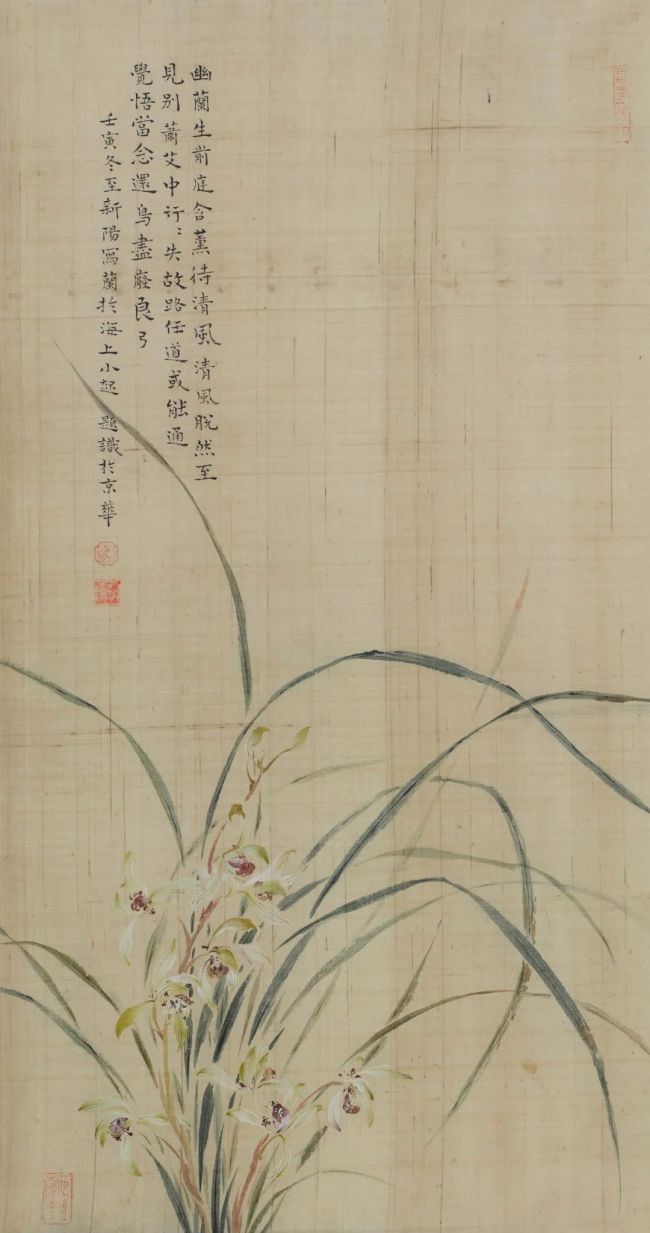 幽蘭生前庭含薰待清風清風脫然至
見別蕭艾中行〻失故路任道或能通
覺悟當念還鳥盡廢良弓
壬寅冬至新陽寫蘭於海上小起 題識於京華